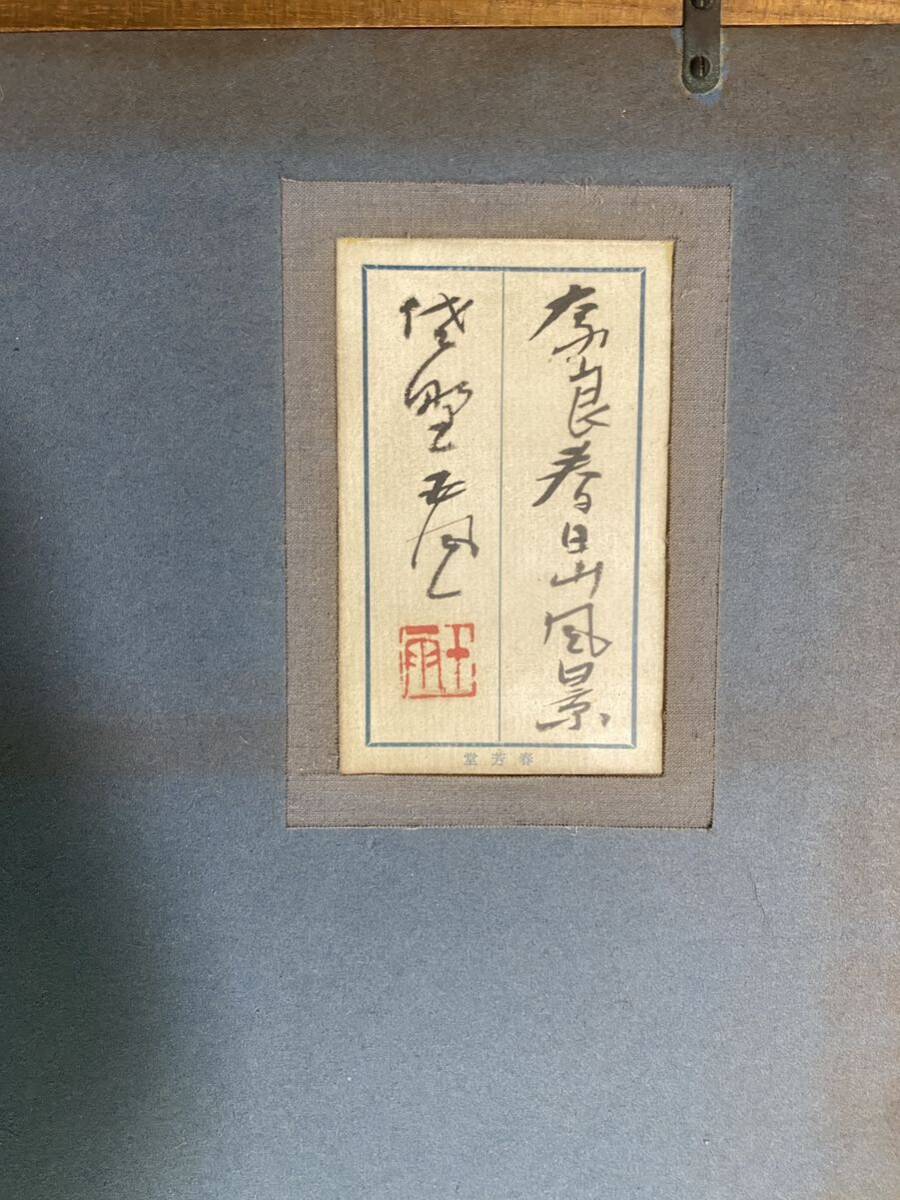 奈良春日山風景
佐野五風
春芳堂